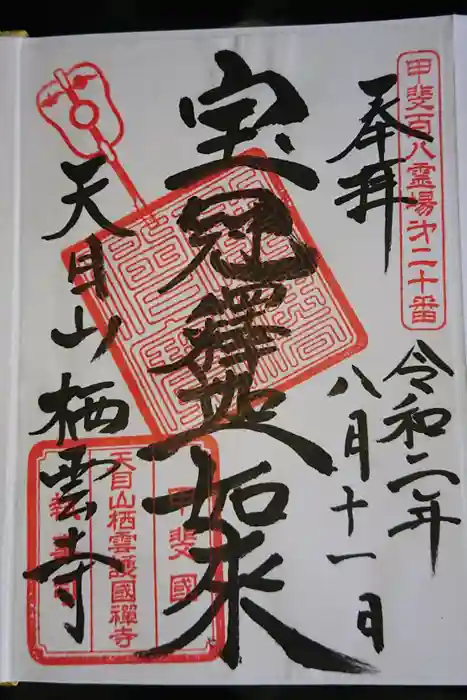 甲斐百八霊場第二十番
奉拝
令和二年
八月十一日
宝冠釋迦如来
天目山栖雲寺
甲斐國
天目山栖雲護國禅寺